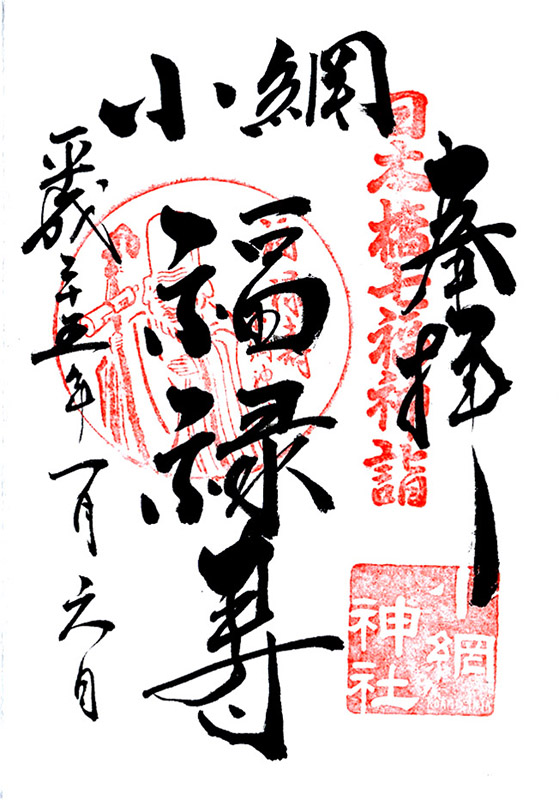 奉拝
日本橋七福神詣
小網
福禄寿
平成二十五年一月六日
小網
神社